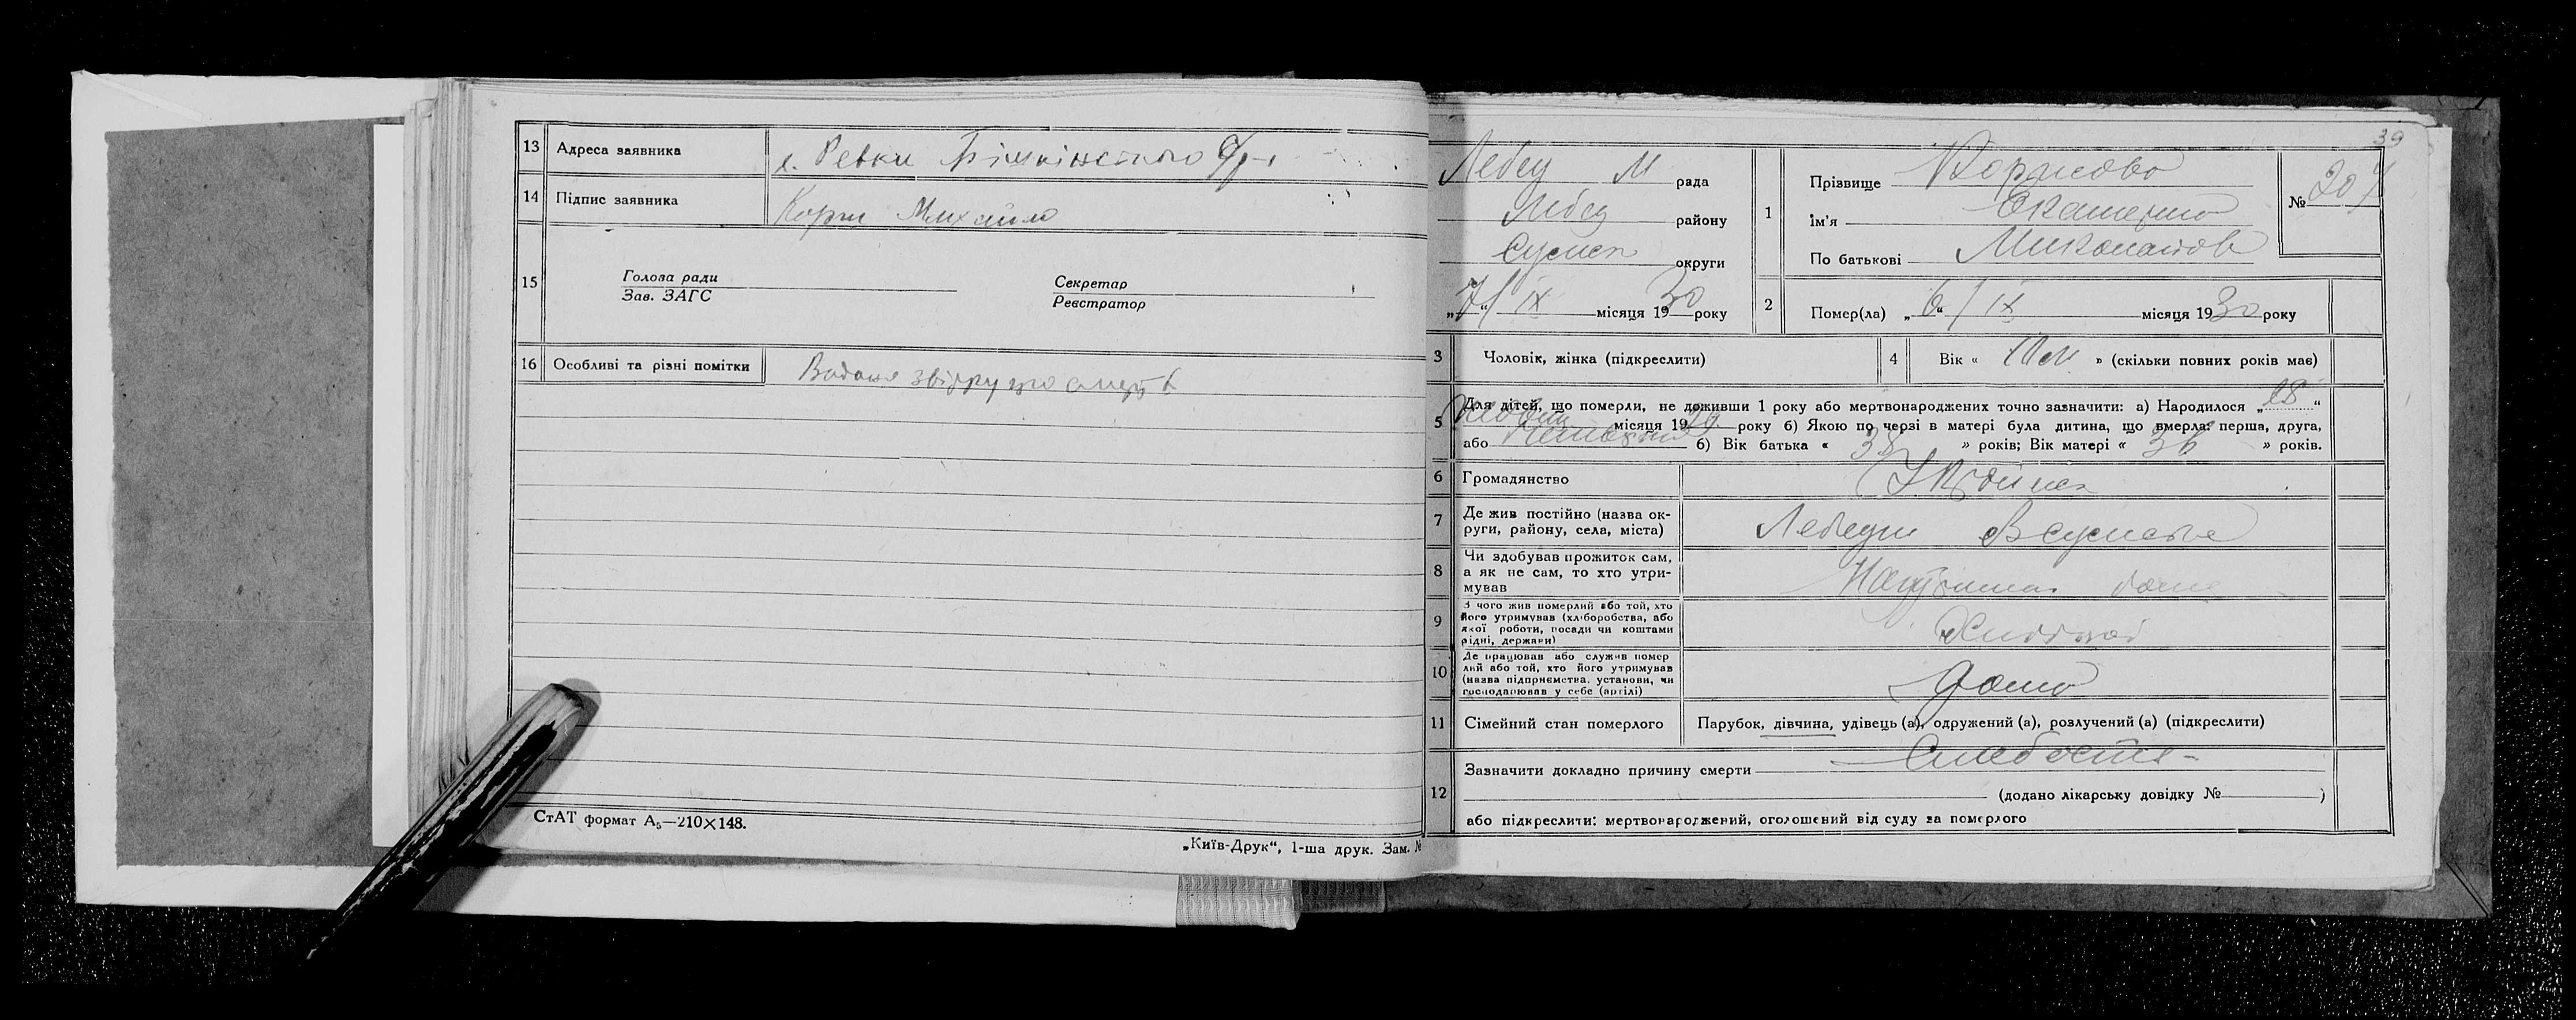 13 Адреса заявника х. Ревки
14 Підпис заявника Корж Михайло
15 Голова ради
Зав. ЗАГС
Секретар
Реєстратор
16 Особливі та різні помітки
СтАТ формат А₅—210×148.
„Київ-Друк“, 1-ша друк. Зам. №
39
Лебед М рада
Лебед району
Сумск округи
„7“ ІХ місяця 1930 року
1 Прізвище Борисова
Ім’я Екатерина
По батькові
№ 207
2 Помер(ла) „6“ ІХ місяця 1930 року
3 Чоловік, жінка (підкреслити)
4 Вік « » (скільки повних років має)
5 Для дітей, що померли, не доживши 1 року або мертвонароджених точно зазначити: а) Народилося „18“
місяця 1929 року б) Якою по черзі в матері була дитина, що вмерла: перша, друга,
або б) Вік батька « 38 » років; Вік матері « 36 » років.
6 Громадянство
7 Де жив постійно (назва ок-
руги, району, села, міста) Лебедин
8 Чи здобував прожиток сам,
а як не сам, то хто утри-
мував
9 З чого жив померлий або той, хто
його утримував (хліборобства, або
якої роботи, посади чи коштами
рідні, держави)
10 Де працював або служив помер
лий або той, хто його утримував
(назва підприємства, установи, чи
господарював у себе (артілі) дома
11 Сімейний стан померлого Парубок, дівчина, удівець (а), одружений (а), розлучений (а) (підкреслити)
12 Зазначити докладно причину смерти Слабость
(додано лікарську довідку № )
або підкреслити: мертвонароджений, оголошений від суду за померлого